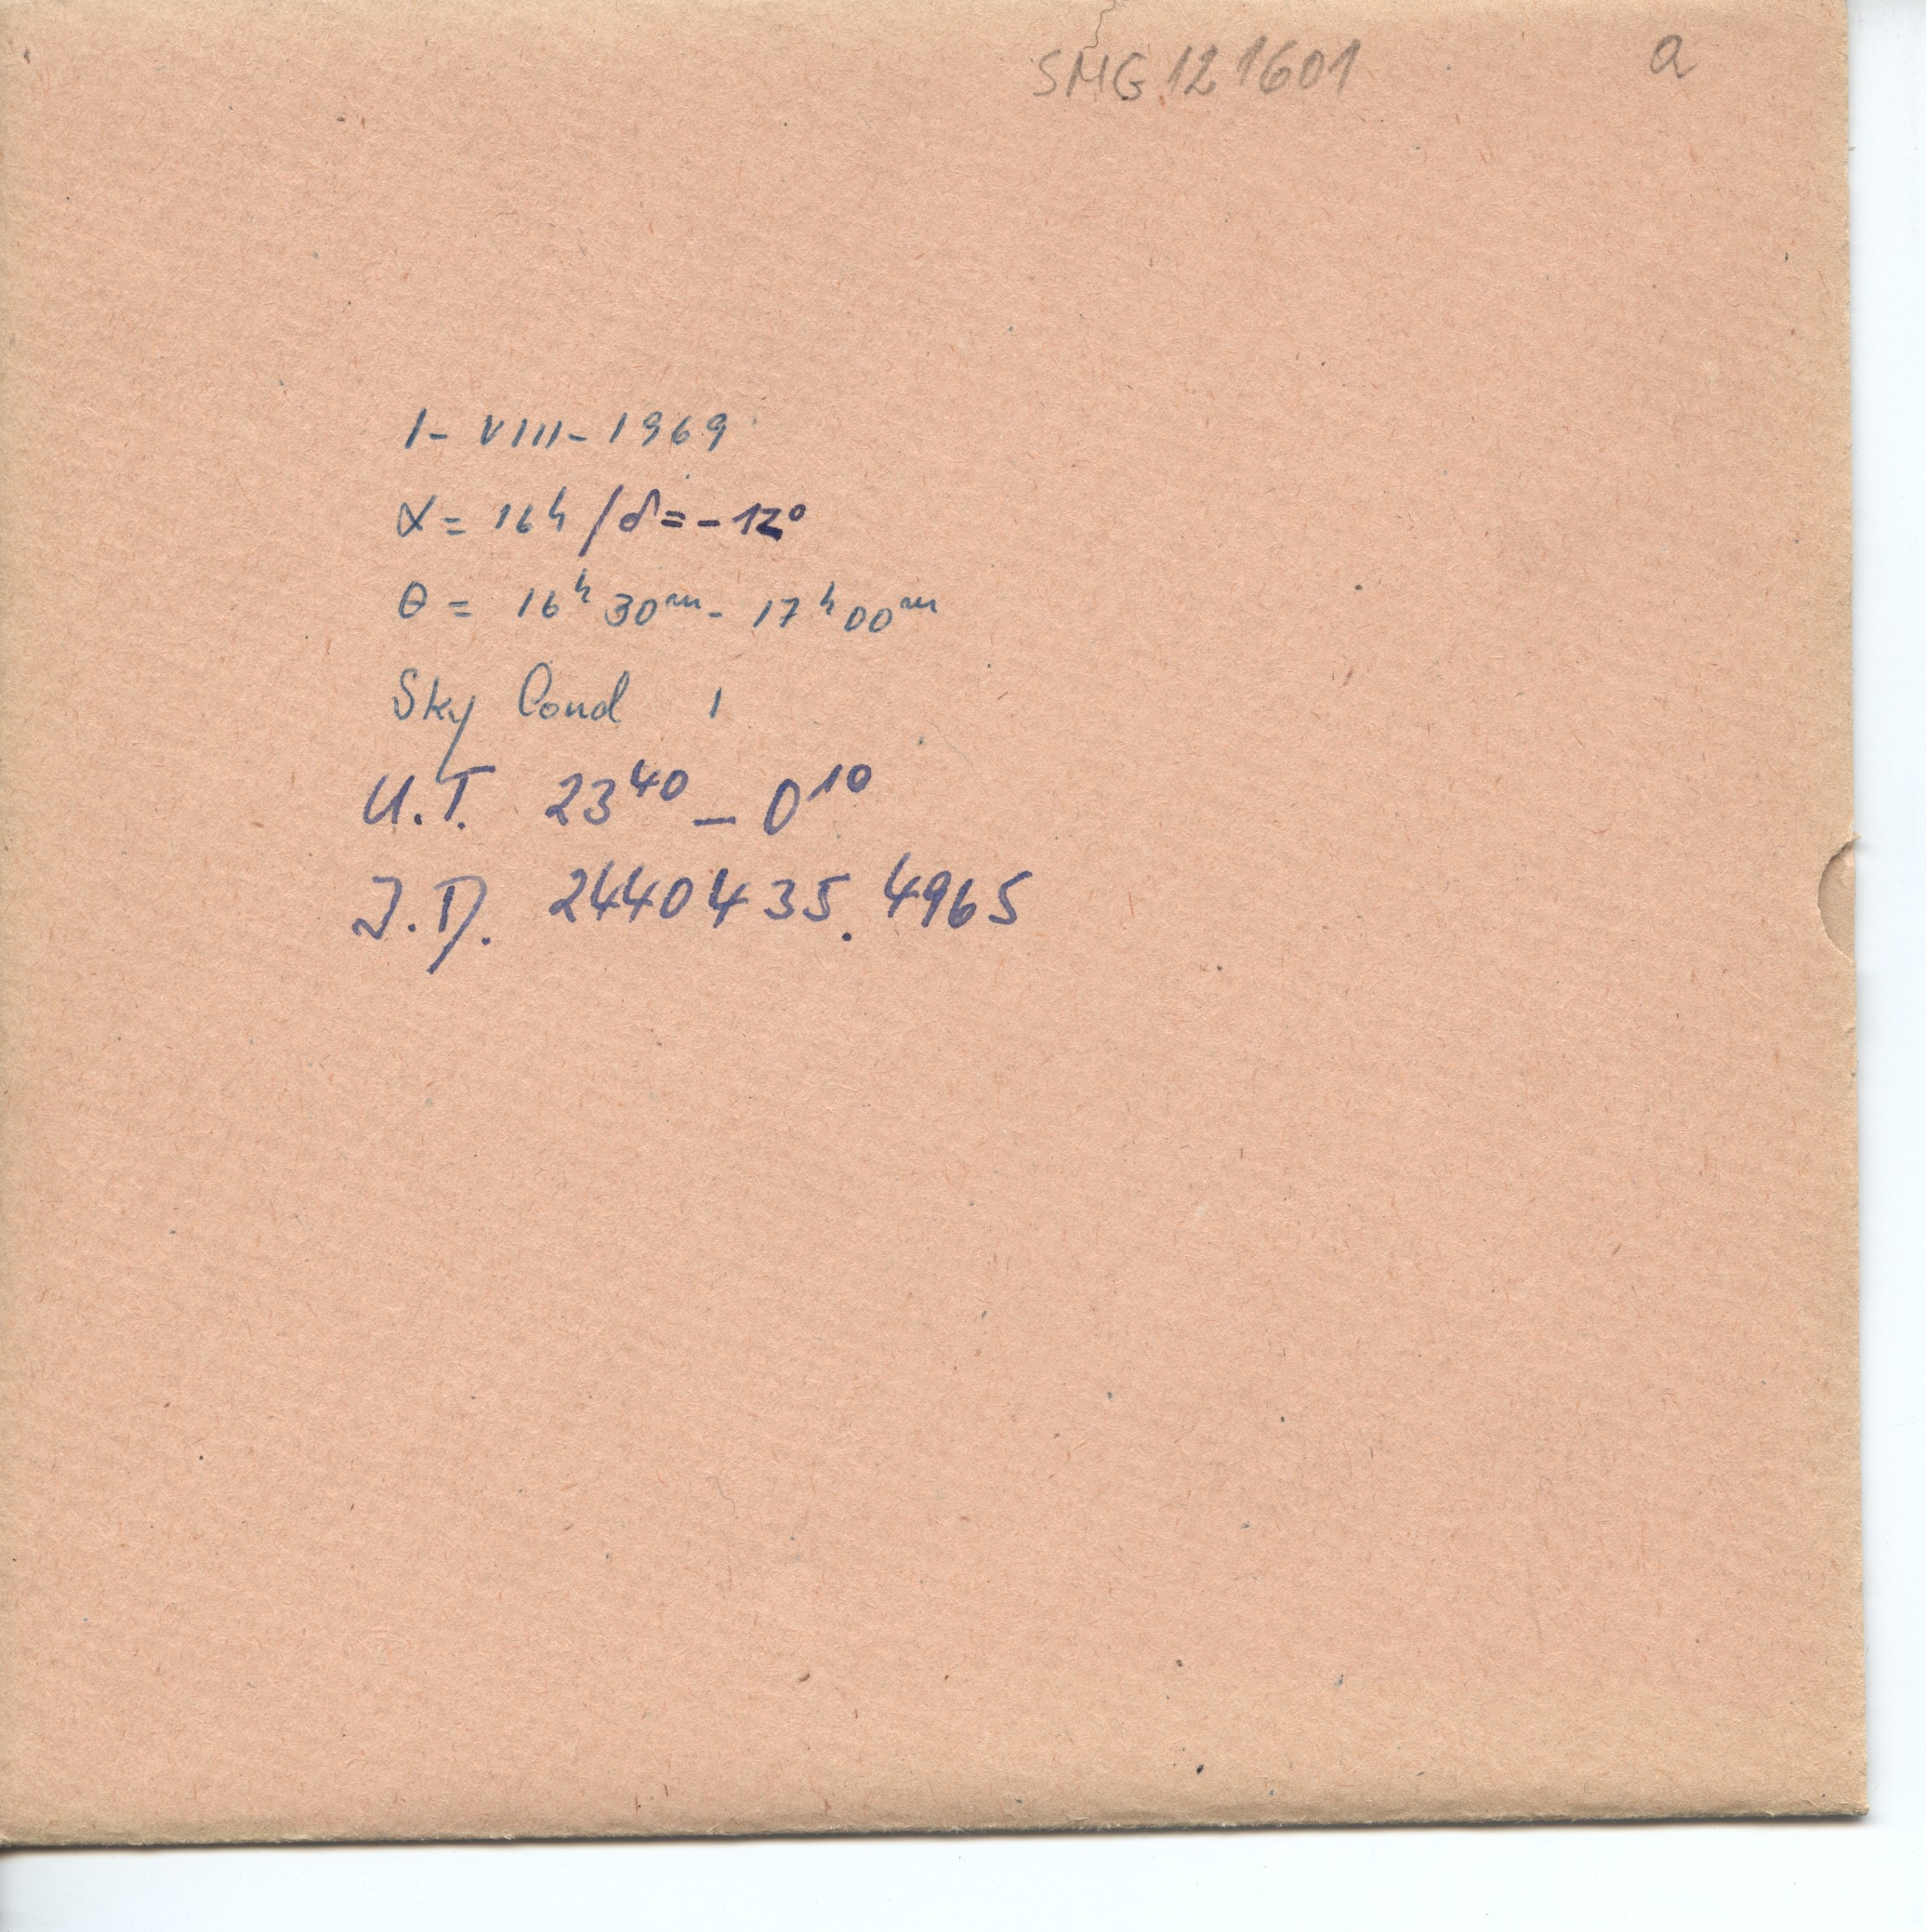 SMG 121601 a
1- VIII- 1969
α = 16h / δ = - 12°
θ = 16ʰ 30ᵐ - 17ʰ 00ᵐ
Sky Cond 1
U.T. 23⁴⁰ - 0¹⁰
J.D. 2440435.4965